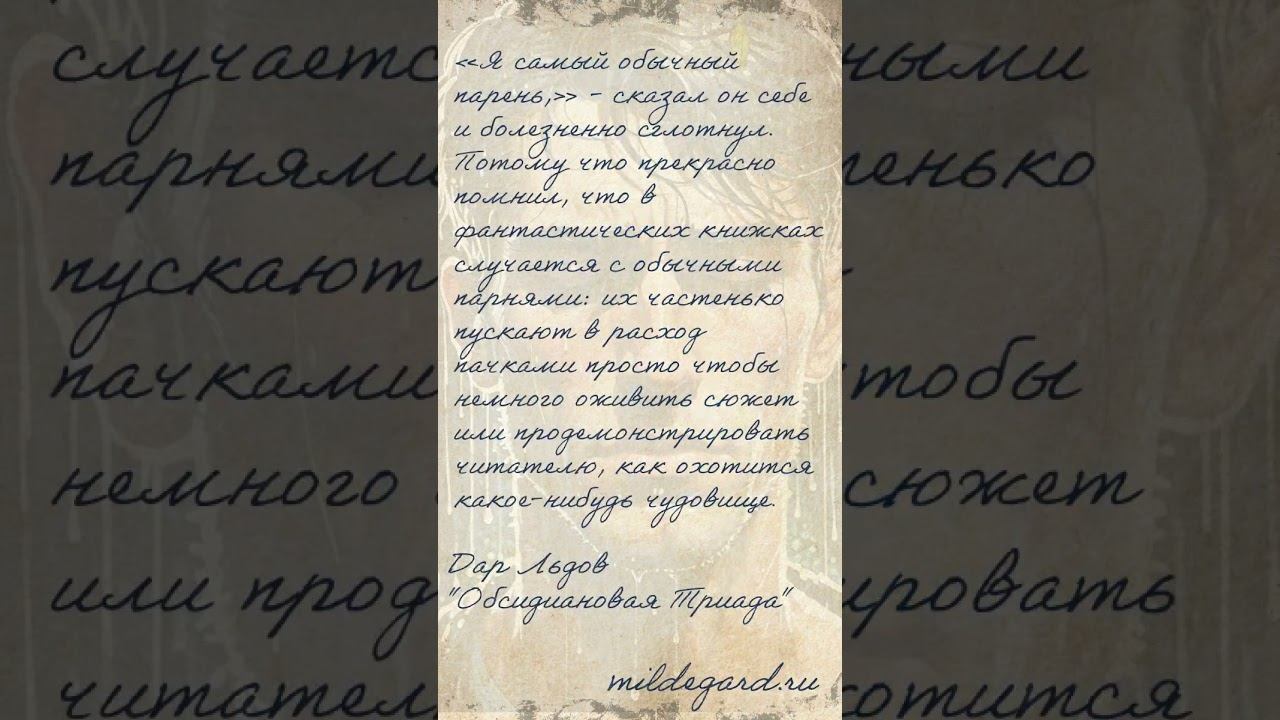 «Я самый обычный
парень,» - сказал он себе
и болезненно сглотнул.
Потому что прекрасно
помнил, что в
фантастических книжках
случается с обычными
парнями: их частенько
пускают в расход
пачками просто чтобы
немного оживить сюжет
или продемонстрировать
читателю, как охотится
какое-нибудь чудовище.
Дар Льдов
"Обсидиановая Триада"
mildegard.ru